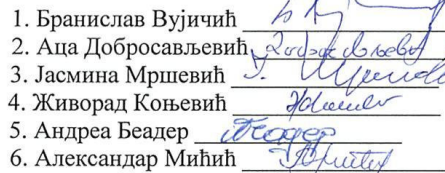 1. Бранислав Вујичић
2. Аца Добросављевић
3. Јасмина Мршевић
4. Живорад Коњевић
5. Андреа Беадер Беадер
6. Александар Мићић